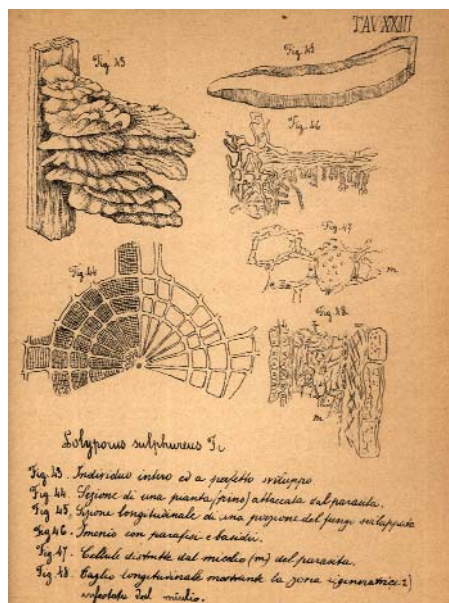 TAV XXIII
Fig. 43
Fig. 45
Fig. 46
Fig. 44
Fig. 47
m
Fig. 48
m
Polyporus sulphureus Fr
Fig. 43. Individuo intero ed a perfetto sviluppo
Fig. 44. Sezione di una pianta (pino) attaccata dal parasita.
Fig. 45. Sezione longitudinale di una porzione del fungo sviluppato
Fig 46. Imenio con parafisi e basidii.
Fig. 47. Cellule distrutte dal micelio (m) del parasita.
Fig. 48. Taglio longitudinale mostrante la zona rigeneratrice
infestata dal micelio.